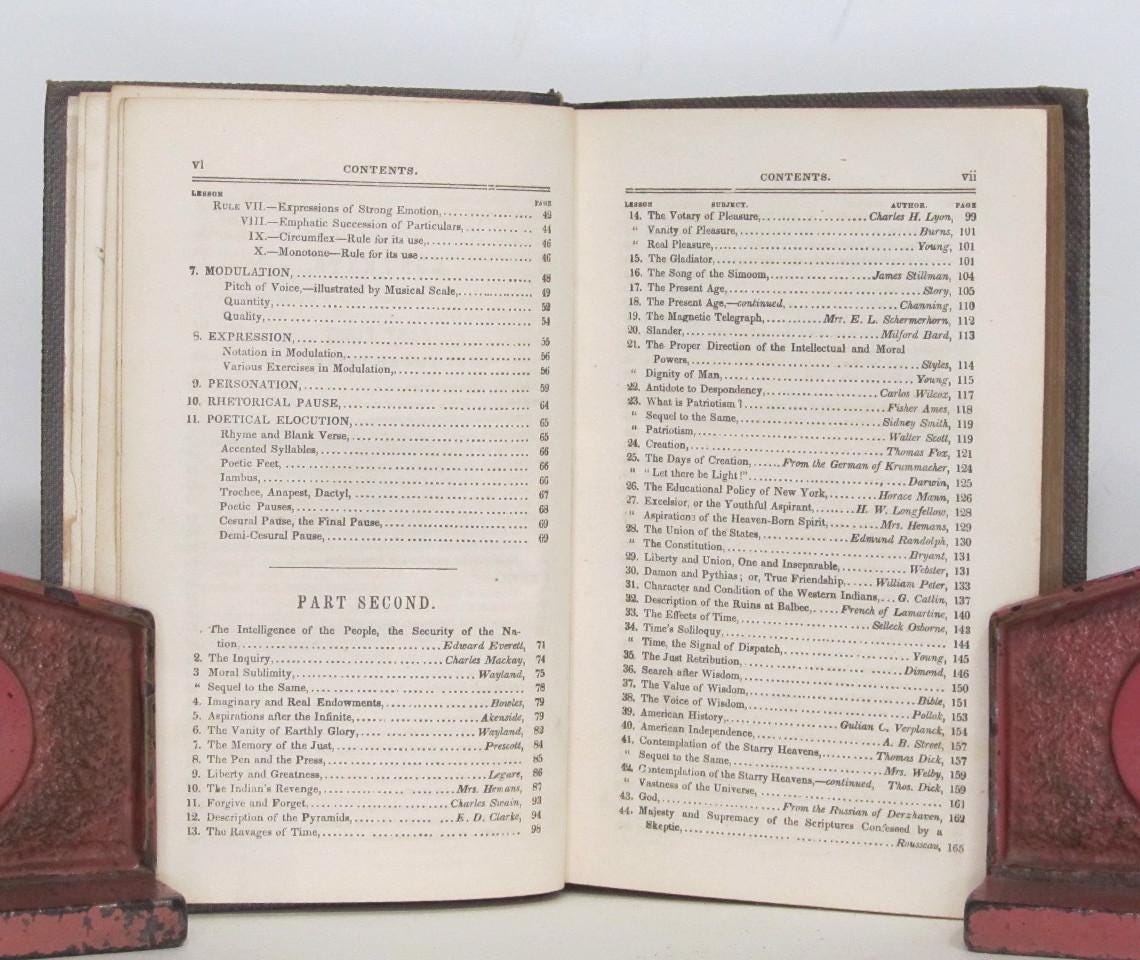 vi
CONTENTS.
LESSON PAGE
RULE VII.—Expressions of Strong Emotion,.......... 42
VIII.—Emphatic Succession of Particulars,.......... 44
IX.—Circumflex—Rule for its use,.......... 46
X.—Monotone—Rule for its use.......... 46
7. MODULATION,.......... 48
Pitch of Voice,—illustrated by Musical Scale,.......... 49
Quantity,.......... 52
Quality,.......... 54
8. EXPRESSION,.......... 55
Notation in Modulation,.......... 56
Various Exercises in Modulation,.......... 56
9. PERSONATION,.......... 59
10. RHETORICAL PAUSE,.......... 64
11. POETICAL ELOCUTION,.......... 65
Rhyme and Blank Verse,.......... 65
Accented Syllables,.......... 66
Poetic Feet,.......... 66
Iambus,.......... 66
Trochee, Anapest, Dactyl,.......... 67
Poetic Pauses,.......... 68
Cesural Pause, the Final Pause,.......... 69
Demi-Cesural Pause,.......... 69
PART SECOND.
The Intelligence of the People, the Security of the Na-
tion,.......... Edward Everett, 71
2. The Inquiry,.......... Charles Mackay, 74
3 Moral Sublimity,.......... Wayland, 75
“ Sequel to the Same,.......... 78
4. Imaginary and Real Endowments,.......... Bowles, 79
5. Aspirations after the Infinite,.......... Akenside, 79
6. The Vanity of Earthly Glory,.......... Wayland, 82
7. The Memory of the Just,.......... Prescott, 84
8. The Pen and the Press,.......... 85
9. Liberty and Greatness,.......... Legare, 86
10. The Indian's Revenge,.......... Mrs. Hemans, 87
11. Forgive and Forget,.......... Charles Swain, 93
12. Description of the Pyramids,.......... E. D. Clarke, 94
13. The Ravages of Time,.......... 98
CONTENTS. vii
LESSON SUBJECT. AUTHOR. PAGE
14. The Votary of Pleasure,.......... Charles H. Lyon, 99
“ Vanity of Pleasure,.......... Burns, 101
“ Real Pleasure,.......... Young, 101
15. The Gladiator,.......... 101
16. The Song of the Simoom,.......... James Stillman, 104
17. The Present Age,.......... Story, 105
18. The Present Age,—continued,.......... Channing, 110
19. The Magnetic Telegraph,.......... Mrs. E. L. Schermerhorn, 112
20. Slander,.......... Milford Bard, 113
21. The Proper Direction of the Intellectual and Moral
Powers,.......... Styles, 114
“ Dignity of Man,.......... Young, 115
22. Antidote to Despondency,.......... Carlos Wilcox, 117
23. What is Patriotism?.......... Fisher Ames, 118
“ Sequel to the Same,.......... Sidney Smith, 119
“ Patriotism,.......... Walter Scott, 119
24. Creation,.......... Thomas Fox, 121
25. The Days of Creation,...... From the German of Krummacher, 124
“ “Let there be Light!”.......... Darwin, 125
26. The Educational Policy of New York,.......... Horace Mann, 126
27. Excelsior, or the Youthful Aspirant,.......... H. W. Longfellow, 128
“ Aspirations of the Heaven-Born Spirit,.......... Mrs. Hemans, 129
28. The Union of the States,.......... Edmund Randolph, 130
“ The Constitution,.......... Bryant, 131
29. Liberty and Union, One and Inseparable,.......... Webster, 131
30. Damon and Pythias; or, True Friendship,..... William Peter, 133
31. Character and Condition of the Western Indians,... G. Catlin, 137
32. Description of the Ruins at Balbec,..... French of Lamartine, 140
33. The Effects of Time,.......... Selleck Osborne, 143
34. Time's Soliloquy,.......... 144
“ Time, the Signal of Dispatch,.......... Young, 145
35. The Just Retribution,.......... Dimond, 146
36. Search after Wisdom,.......... 150
37. The Value of Wisdom,.......... Bible, 151
38. The Voice of Wisdom,.......... Pollok, 153
39. American History,.......... Gulian C. Verplanck, 154
40. American Independence,.......... A. B. Street, 157
41. Contemplation of the Starry Heavens,.......... Thomas Dick, 157
“ Sequel to the Same,.......... Mrs. Welby, 159
42. Contemplation of the Starry Heavens,—continued, Thos. Dick, 159
“ Vastness of the Universe,.......... 161
43. God,.......... From the Russian of Derzhaven, 162
44. Majesty and Supremacy of the Scriptures Confessed by a
Skeptic,.......... Rousseau, 165